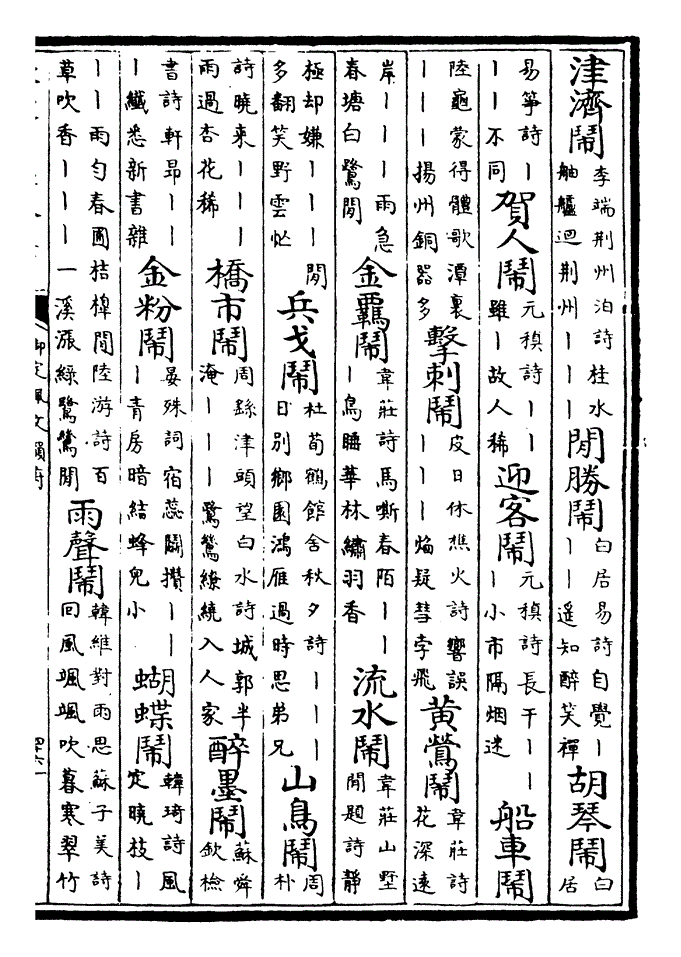 津濟鬧李端荆州泊詩桂水舳艫迴荆州丨丨丨閒勝鬧白居易詩自覺丨丨丨遥知醉笑禪胡琴鬧白居
易箏詩丨丨丨不同賀人鬧元稹詩丨丨雖丨故人稀迎客鬧元稹詩長干丨丨丨小市隔烟迷船車鬧
陸龜蒙得體歌潭裏丨丨丨揚州銅器多擊刺鬧皮日休樵火詩響誤丨丨丨焰疑彗孛飛黄鶯鬧韋莊詩花深遠
岸丨丨丨雨急春塘白鷺閒金羈鬧韋莊詩馬嘶春陌丨丨丨鳥睡華林繡羽香流水鬧韋莊山墅閒題詩靜
極却嫌丨丨丨閒多翻笑野雲忙兵戈鬧杜荀鶴館舍秋夕詩丨丨丨日别鄉園鴻雁過時思弟兄山鳥鬧周朴
詩曉來丨丨丨雨過杏花稀橋市鬧周繇津頭望白水詩城郭半淹丨丨丨鷺鷥繚繞入人家醉墨鬧蘇舜欽檢
書詩軒昂丨丨丨纖悉新書雜金粉鬧晏殊詞宿蕊鬭攢丨丨丨青房暗結蜂兒小蝴蝶鬧韓琦詩風定曉枝丨
丨丨雨匀春圃桔橰閒陸游詩百草吹香丨丨丨一溪漲綠鷺鷥閒雨聲鬧韓維對雨思蘇子美詩回風颯颯吹暮寒翠竹
御定佩文韻府